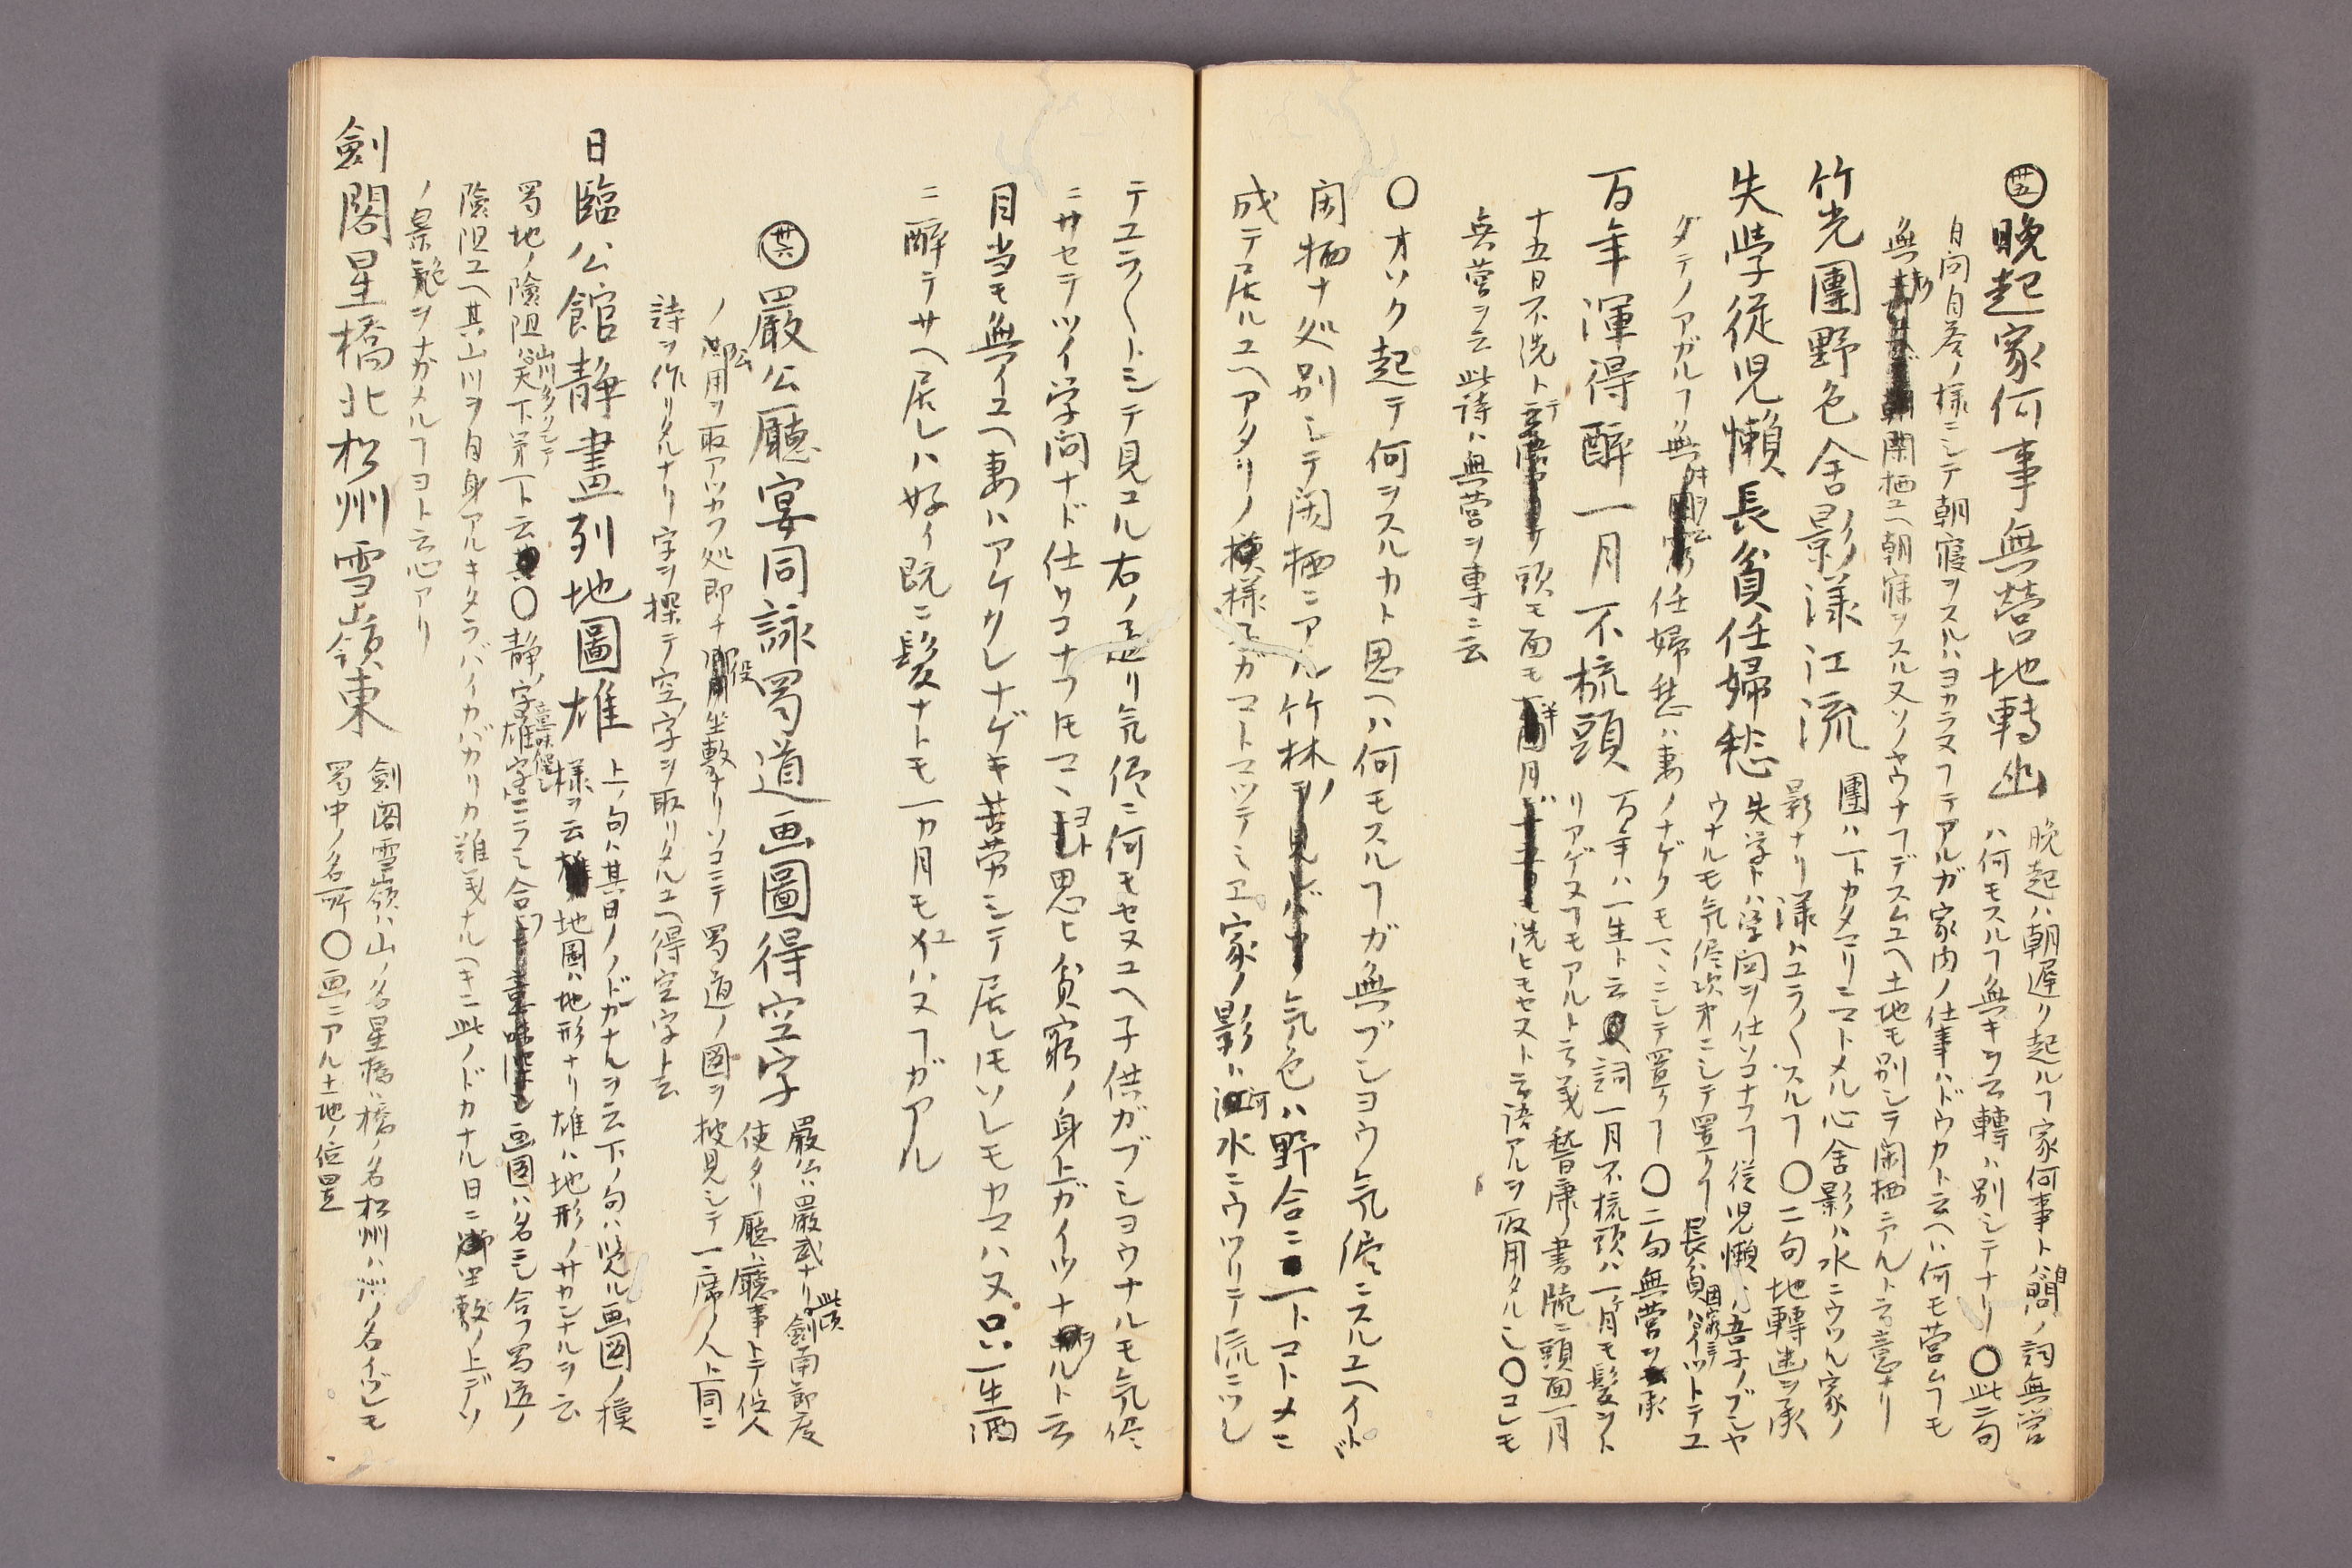 卅五
晩起家何事無營地轉幽
晩起ハ朝遅ク起ルヿ家何事トハ自問ノ詞無営
ハ何モスルヿ無キヲ云轉ハ別シテナリ〇此二句
自問自荅ノ様ニシテ朝寝ヲスルハヨカラヌヿデアルガ家内ノ仕事ハドウカト云ヘハ何モ営ムヿモ
無ク閑栖ユヘ朝寐ヲスル又ソノヤウナヿデスムユヘ土地モ別シテ閑栖ニアルト云意ナリ
竹光團野色舍影漾江流
團ハ一トカタマリニマトメル心舍影ハ水ニウツル家ノ
影ナリ漾ハユラ〳〵スルヿ〇二句地轉幽ヲ承
失學從児懶長貧任婦愁
失学トハ学问ヲ仕ソコナフヿ従児懶ハ吾子ノブシヤ
ウナルモ気侭次第ニシテ置ク長貧ハイツトテユ
ダテノアガルヿ無任婦愁ハ妻ノナゲクモマヽニシテ置クヿ〇二句無営ヲ承
百年渾得醉一月不梳頭
百年ハ一生ト云詞一月不梳頭ハ一ヶ月モ髪ヲト
リアゲヌヿモアルト云義嵆康ノ書牘ニ頭面一月
十五日不洗トテ頭モ面モ半月モ洗ヒモセストニ云語アルヲ取用タル也〇コレモ
無營ヲ云此詩ハ無營ヲ專ニ云
〇オソク起テ何ヲスルカト思ヘハ何モスルヿガ無ブシヨウ気侭ニスルユヘイト
閑栖ナ処別シテ閑栖ニアル竹林ノ気色ハ野合ニ一トマトメニ
成テ居ルユヘアタリノ模様ガマトマツテミエ家ノ影ハ河水ニウツリテ流ニツレ
テユラ〳〵トシテ見ユル右ノ通リ気侭ニ何モセヌユヘ子供ガブシヨウナルモ気侭
ニサセテツイ学问ナド仕ソコナフ𪜈マヽヨト思ヒ貧窮ノ身上ガイツナルト云
目当モ無イユヘ妻ハアケクレナゲキ苦労シテ居レ𪜈ソレモカマハヌ只一生酒
ニ醉テサヘ居レハ好イ既ニ髪ナトモ一カ月モユハヌヿガアル
卅六
嚴公廳宴同詠蜀道画圖得空字
嚴公ハ嚴武ナリ此頃劍南節度
使タリ廳ハ廳事トテ役人
ノ公用ヲ取アツカフ処即チ役坐敷ナリソコニテ蜀道ノ図ヲ披見シテ一席ノ人ト同ニ
詩ヲ作リタルナリ字ヲ探テ空ノ字ヲ取リタルユヘ得空字ト云
日臨公館静畫列地圖雄
上ノ句ハ其日ノノドカナルヲ云下ノ句ハ覧ル画図ノ模
様ヲ云地圖ハ地形ナリ雄ハ地形ノサカンナルヲ云
蜀地ノ險阻山川多クシテ天下第一ト云〇静ノ字雄ノ字ニテ意味ヲ含画図ハ名ニシ合フ蜀道ノ
險阻ユヘ其山川ヲ自身アルキタラバイカバカリカ難義ナルヘキニ此ノドカナル日ニ坐敷ノ上デソ
ノ景𧳖ヲナカメルヿヨト云心アリ
劍閣星橋北松州雪嶺東
劍閣雪嶺ハ山ノ名星橋ハ橋ノ名松州ハ州ノ名イヅレモ
蜀中ノ名所〇画ニアル土地ノ位置